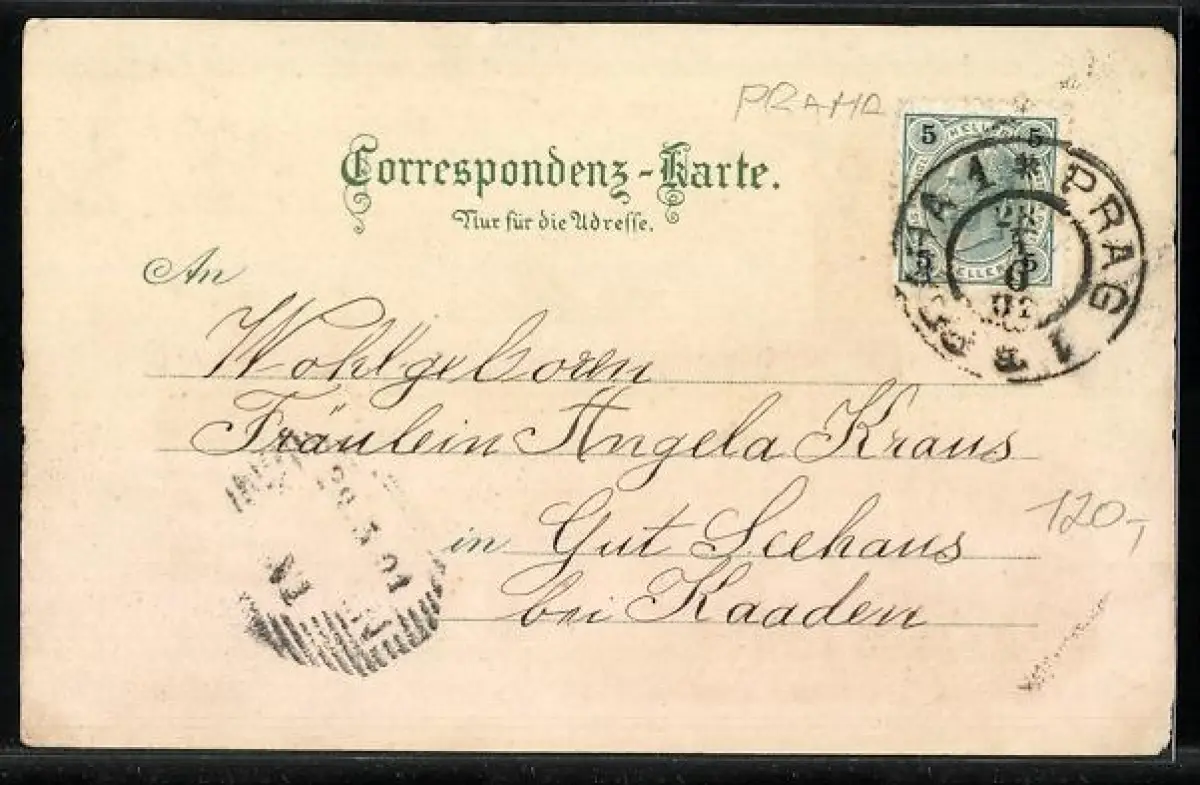 PRAHA
Correspondenz-Karte.
Nur für die Adresse.
5 HELLER 5
5 HELLER 5
PRAG 1
28
01
An
Wohlgeboren
Fräulein Angela Kraus
in Gut Seehaus
bei Kaaden
120,-